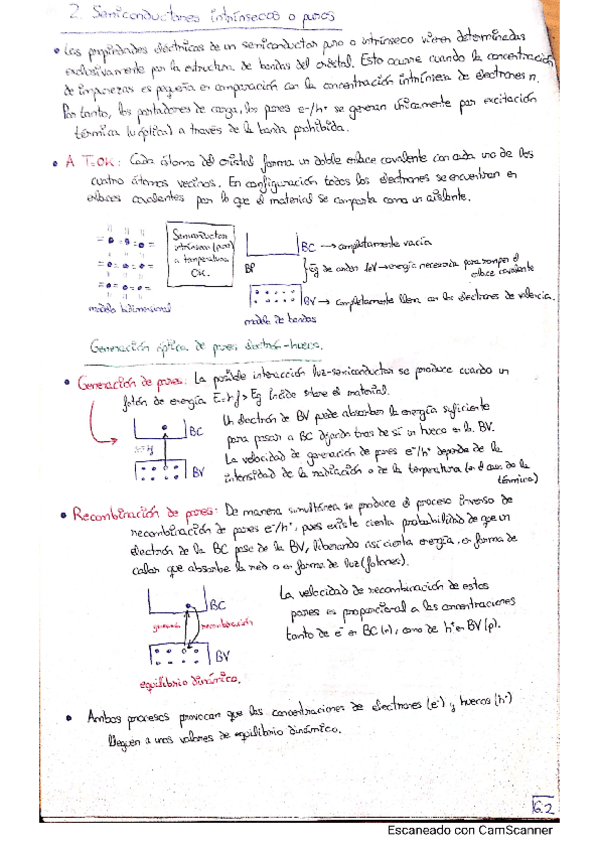 2. Semiconductores intrínsecos o puros
• Las propiedades eléctricas de un semiconductor puro o intrínseco vienen determinadas
exclusivamente por la estructura de bandas del cristal. Esto ocurre cuando la concentración
de impurezas es pequeña en comparación con la concentración intrínseca de electrones n.
Por tanto, los portadores de carga, los pares e-/h+ se generan únicamente por excitación
térmica (u óptica) a través de la banda prohibida.
• A T=0K: Cada átomo del cristal forma un doble enlace covalente con cada uno de los
cuatro átomos vecinos. En configuración todos los electrones se encuentran en
enlaces covalentes por lo que el material se comporta como un aislante.
Semiconductor
intrínseco (puro)
a temperatura
0K.
BC → completamente vacía
BP
} Eg de orden 1eV → energía necesaria para romper el
enlace covalente
BV → completamente llena con los electrones de valencia.
modelo bidimensional
modelo de bandas
Generación óptica de pares electrón-hueco.
• Generación de pares: La posible interacción luz-semiconductor se produce cuando un
fotón de energía E=hf>Eg incide sobre el material.
BC
BV
Un electrón de BV puede absorber la energía suficiente
para pasar a BC dejando tras de sí un hueco en la BV.
La velocidad de generación de pares e-/h+ depende de la
intensidad de la radiación o de la temperatura (en el caso de la
térmica)
• Recombinación de pares: De manera simultánea se produce el proceso inverso de
recombinación de pares e-/h+, pues existe cierta probabilidad de que un
electrón de la BC pase de la BV, liberando así cierta energía, en forma de
calor que absorbe la red o en forma de luz (fotones).
BC
recombinación
BV
equilibrio dinámico.
La velocidad de recombinación de estos
pares es proporcional a las concentraciones
tanto de e- en BC (n), como de h+ en BV (p).
• Ambos procesos provocan que las concentraciones de electrones (e-) y huecos (h+)
lleguen a unos valores de equilibrio dinámico.
6.2
Escaneado con CamScanner